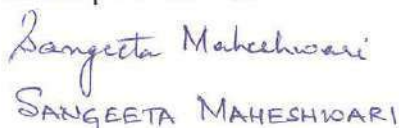 Sangeeta Maheshwari
SANGEETA MAHESHWARI